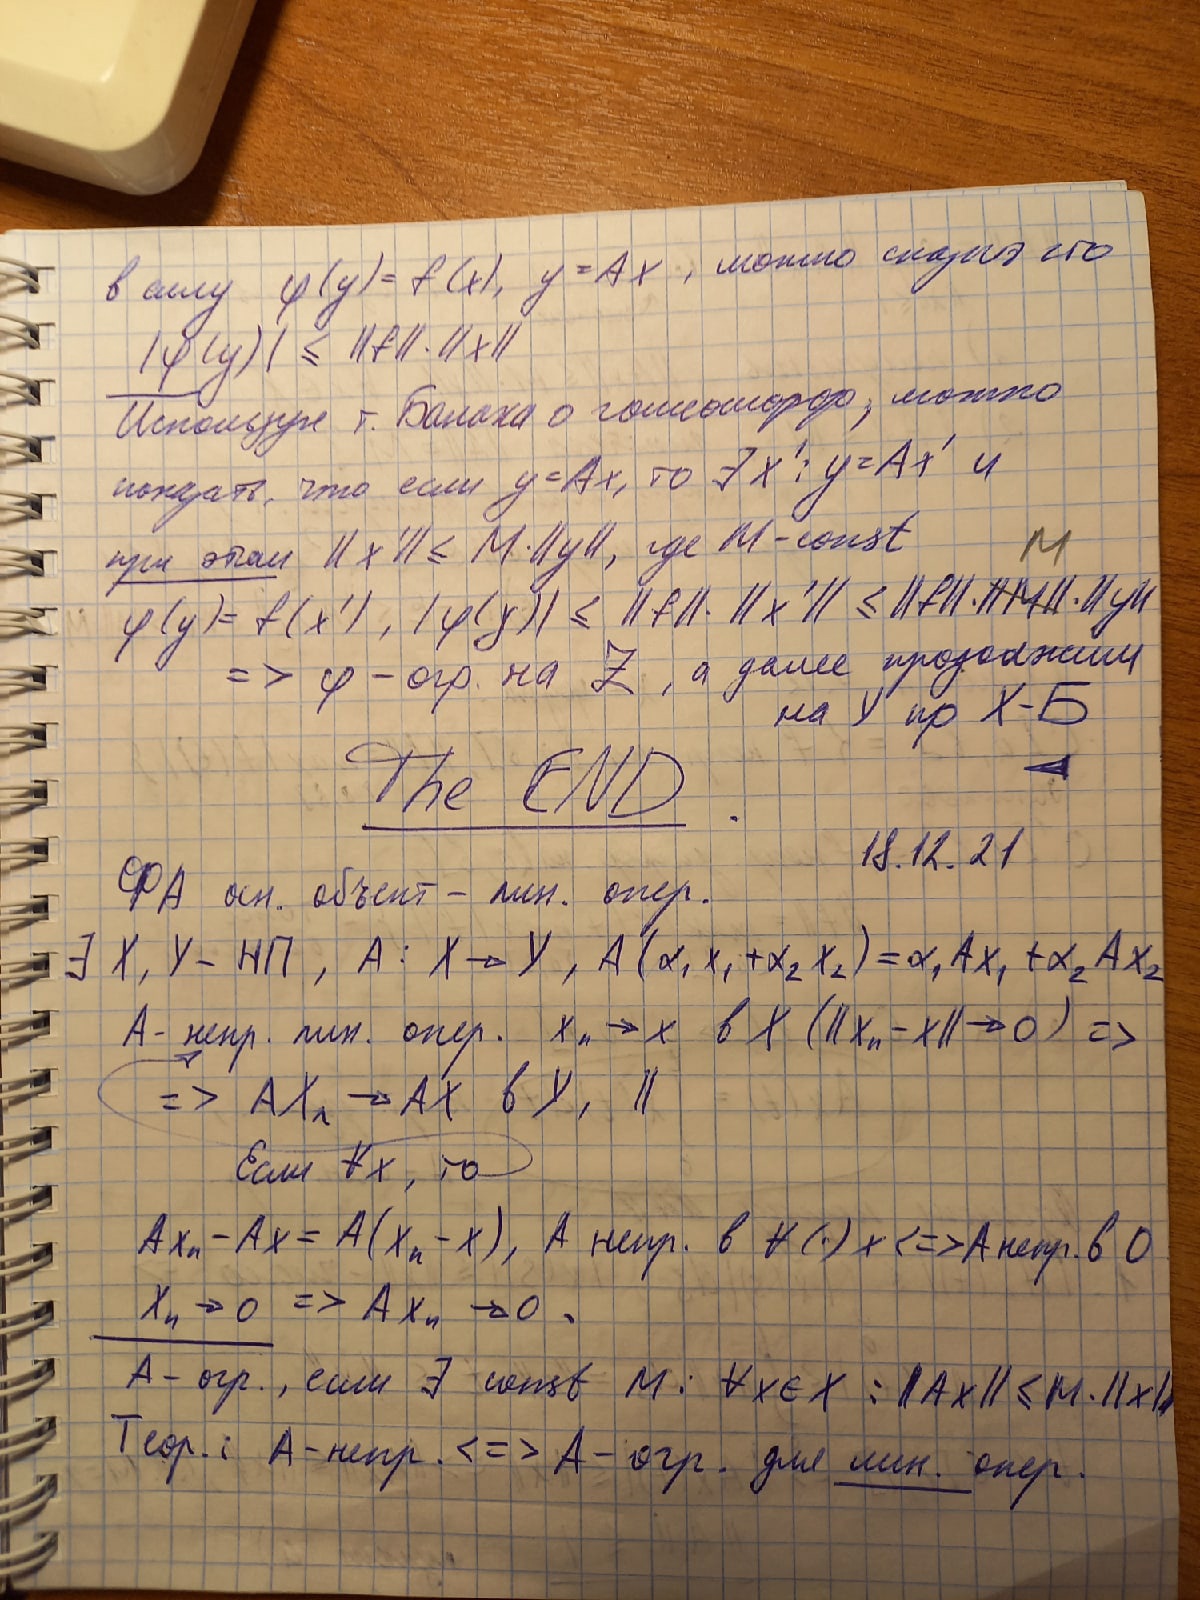 в силу φ(y)=f(x), y=Ax, можно сказать что
|φ(y)| ≤ ||f||·||x||
Используя т. Банаха о гомеоморф, можно
показать, что если y=Ax, то ∃x': y=Ax' и
при этом ||x'|| ≤ M·||y||, где M-const
M
φ(y)=f(x'), |φ(y)| ≤ ||f||·||x'|| ≤ ||f||·||M||·||y||
=> φ - огр. на Z, а далее продолжим
на Y по Х-Б
◄
The END.
18.12.21
ФА осн. объект - лин. опер.
∃ X, Y - НП, A: X→Y, A(α₁x₁+α₂x₂)=α₁Ax₁+α₂Ax₂
A- непр. лин. опер. xₙ→x в X (||xₙ-x||→0) =>
=> Axₙ→Ax в Y, ||
Если ∀x, то
Axₙ-Ax=A(xₙ-x), A непр. в ∀(·)x <=> A непр. в 0
xₙ→0 => Axₙ→0.
A- огр., если ∃ const M: ∀x∈X: ||Ax|| ≤ M·||x||
Теор.: A-непр. <=> A-огр. для лин. опер.